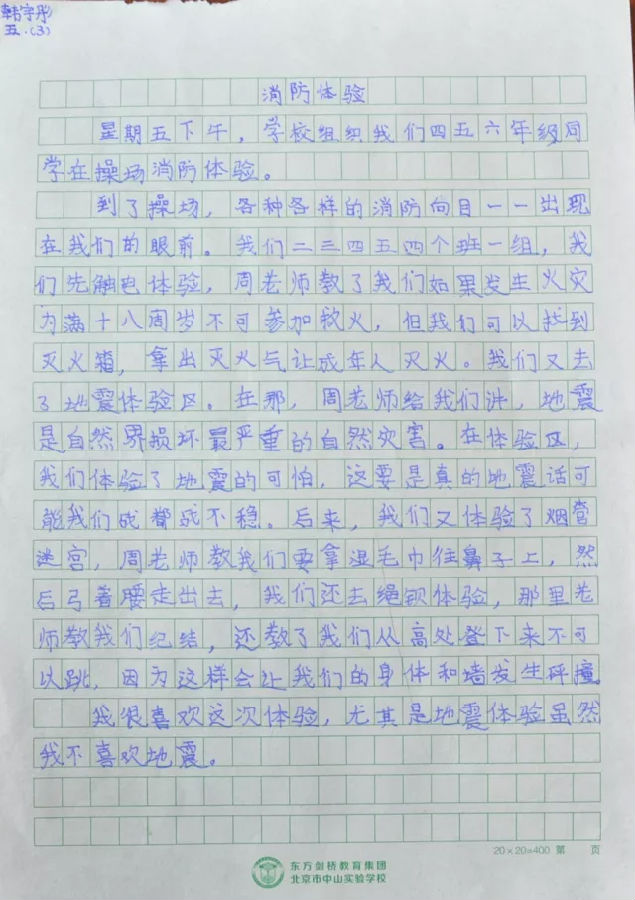 韩宇彤
五.(3)
消防体验
星期五下午，学校组织我们四五六年级同
学在操场消防体验。
到了操场，各种各样的消防向目一一出现
在我们的眼前。我们二三四五四个班一组，我
们先触电体验，周老师教了我们如果发生火灾
为满十八周岁不可参加救火，但我们可以找到
灭火箱，拿出灭火气让成年人灭火。我们又去
了地震体验区。在那，周老师给我们讲，地震
是自然界损坏最严重的自然灾害。在体验区，
我们体验了地震的可怕，这要是真的地震话可
能我们战都战不稳。后来，我们又体验了烟雾
迷宫，周老师教我们要拿湿毛巾往鼻子上，然
后弓着腰走出去，我们还去绳锁体验，那里老
师教我们纪结，还教了我们从高处登下来不可
以跳，因为这样会让我们的身体和墙发生砰撞
我很喜欢这次体验，尤其是地震体验虽然
我不喜欢地震。
20×20=400 第 页
东方剑桥教育集团
北京市中山实验学校